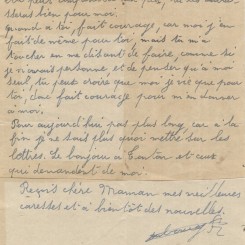 bien pour moi.
Quand à toi fait courage, car moi j'en
fait de même pour toi, mais tu m'
en me disant de faire, comme si
je n'avait personne et de penser qu'à moi
seul tu peux croire que moi je vie que pour
toi. Une fait courage pour m'en donner
à moi.
Pour aujourd'hui pas plus long car à la
fin je ne sait plus quoi mettre sur les
lettres. Le bonjour à et ceux
qui demandent de moi.
Reçois chère Maman mes meilleures
caresses et à bientôt des nouvelles.